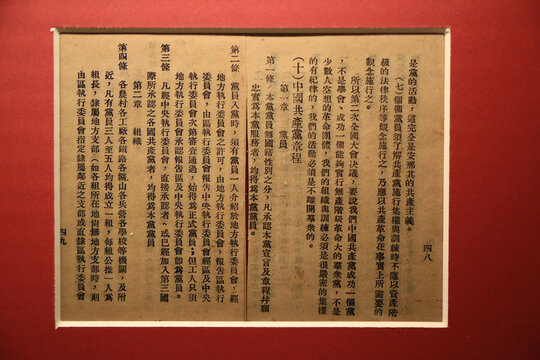 四八
是黨的活動，這完全是安那其的共產主義。
（七）個個黨員須了解共產黨施行集權與訓練時不應以資產階
級的法律秩序等觀念施行之，乃應以共產革命在事實上所需要的
觀念施行之。
所以第二次全國大會決議，要說我們中國共產黨成功一個黨
，不是學會，成功一個能夠實行無產階級革命大的羣衆黨，不是
少數人空想的革命團體，我們的組織與訓練必須是很嚴密的集權
的有紀律的，我們的活動必須是不離開羣衆的。
（十）中國共產黨章程
第一章　黨員
第一條　本黨黨員無國籍性別之分，凡承認本黨宣言及章程幷願
忠實爲本黨服務者，均得爲本黨黨員。
第二條　黨員入黨時，須有黨員一人介紹於地方執行委員會，經
地方執行委員會之許可，由地方執行委員會，報告區執行
委員會，由區執行委員會報告中央執行委員會，經區及中央
執行委員會次第審查通過，始得爲正式黨員；但工人只須
地方執行委員會承認報告區及中央執行委員會卽爲黨員。
第三條　凡經中央執行委員會，直接承認者，或已經加入第三國
際所承認之各國共產黨者，均得爲本黨黨員。
第二章　組織
第四條　各農村各工廠各鐵路各礦山各兵營各學校等機關，及附
近，凡有黨員三人至五人均得成立一組，每組公推一人爲
組長，隸屬地方支部（如各組所在地尙無地方支部時，則
由區執行委員會指定隸屬鄰近之支部或直隸區執行委員會
四九